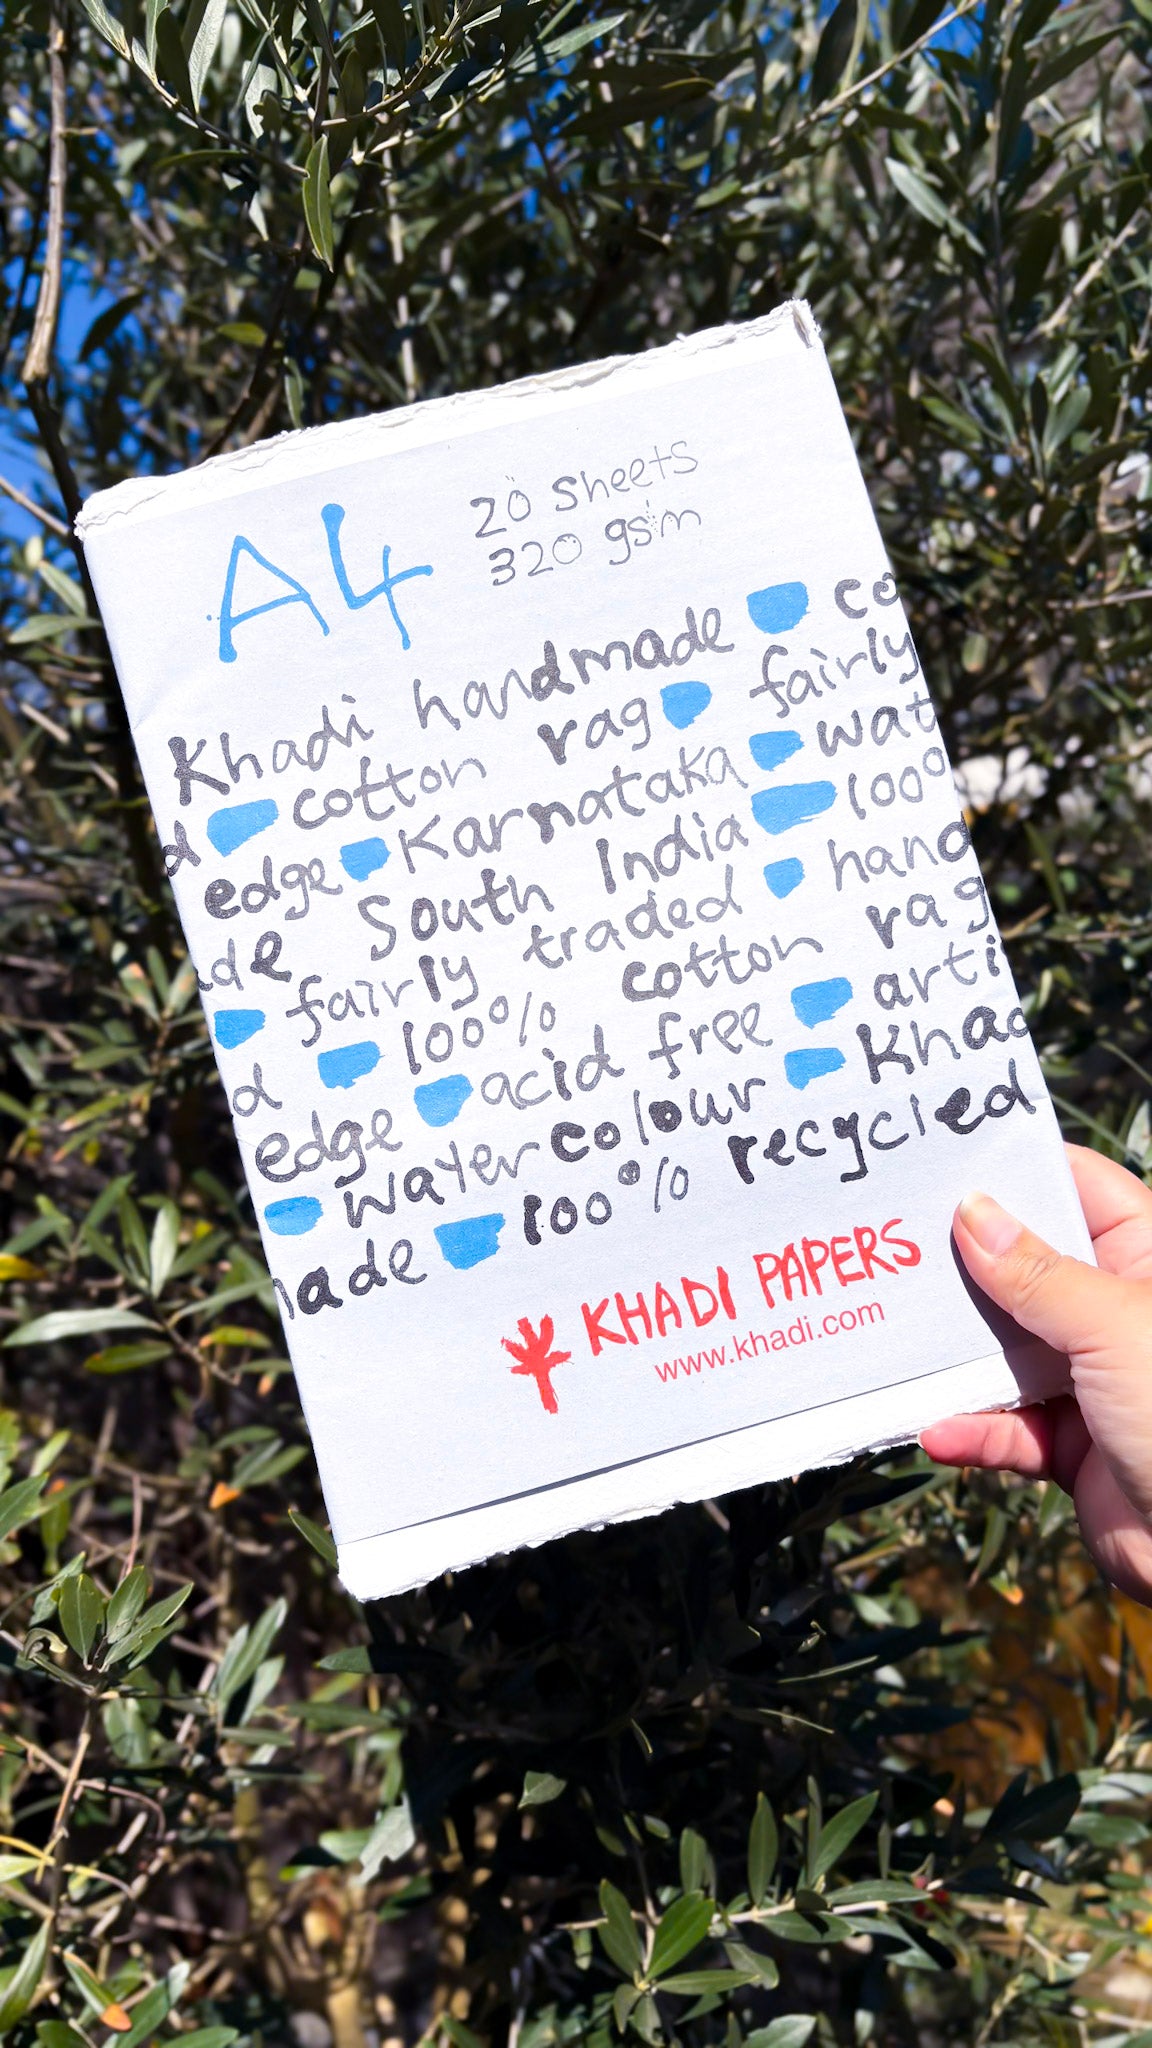 A4
20 sheets
320 gsm
Khadi handmade co
d cotton rag fairly
edge Karnataka wat
de South India 100%
fairly traded hand
d 100% cotton rag
edge acid free arti
watercolour Khad
made 100% recycled
KHADI PAPERS
www.khadi.com